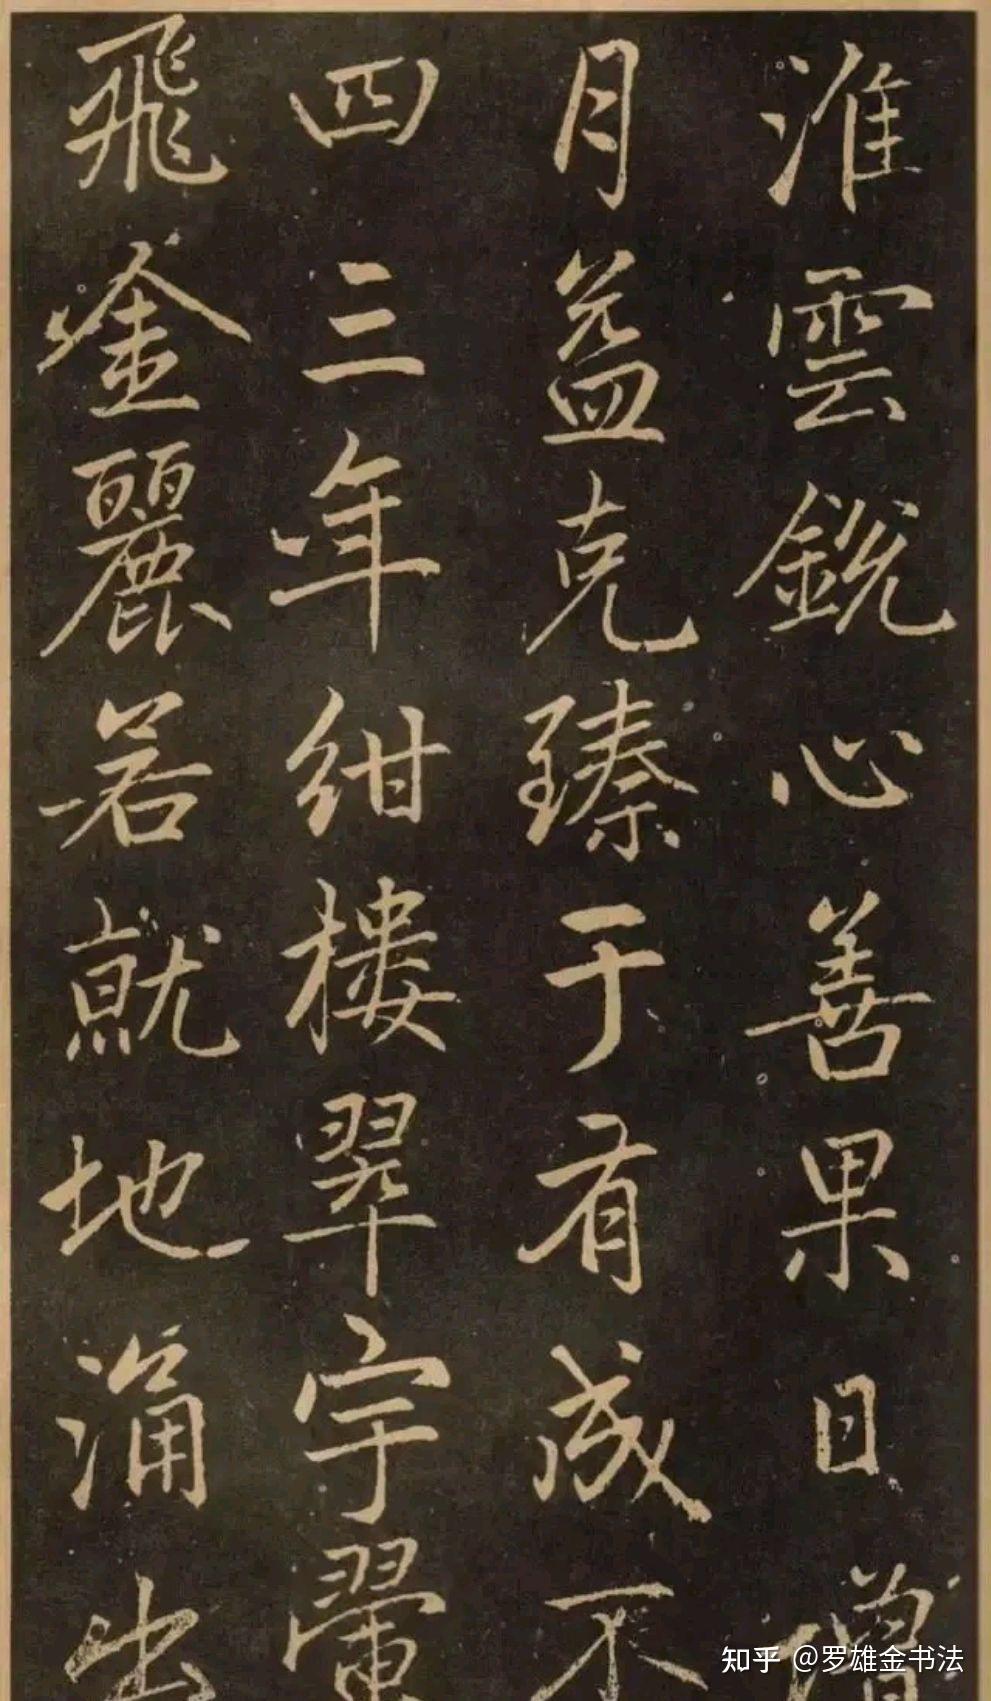 淮雲鋭心善果日增
月益克臻于有成不
四三年紺樓翠宇翬
飛金麗若就地涌出
知乎 @罗雄金书法